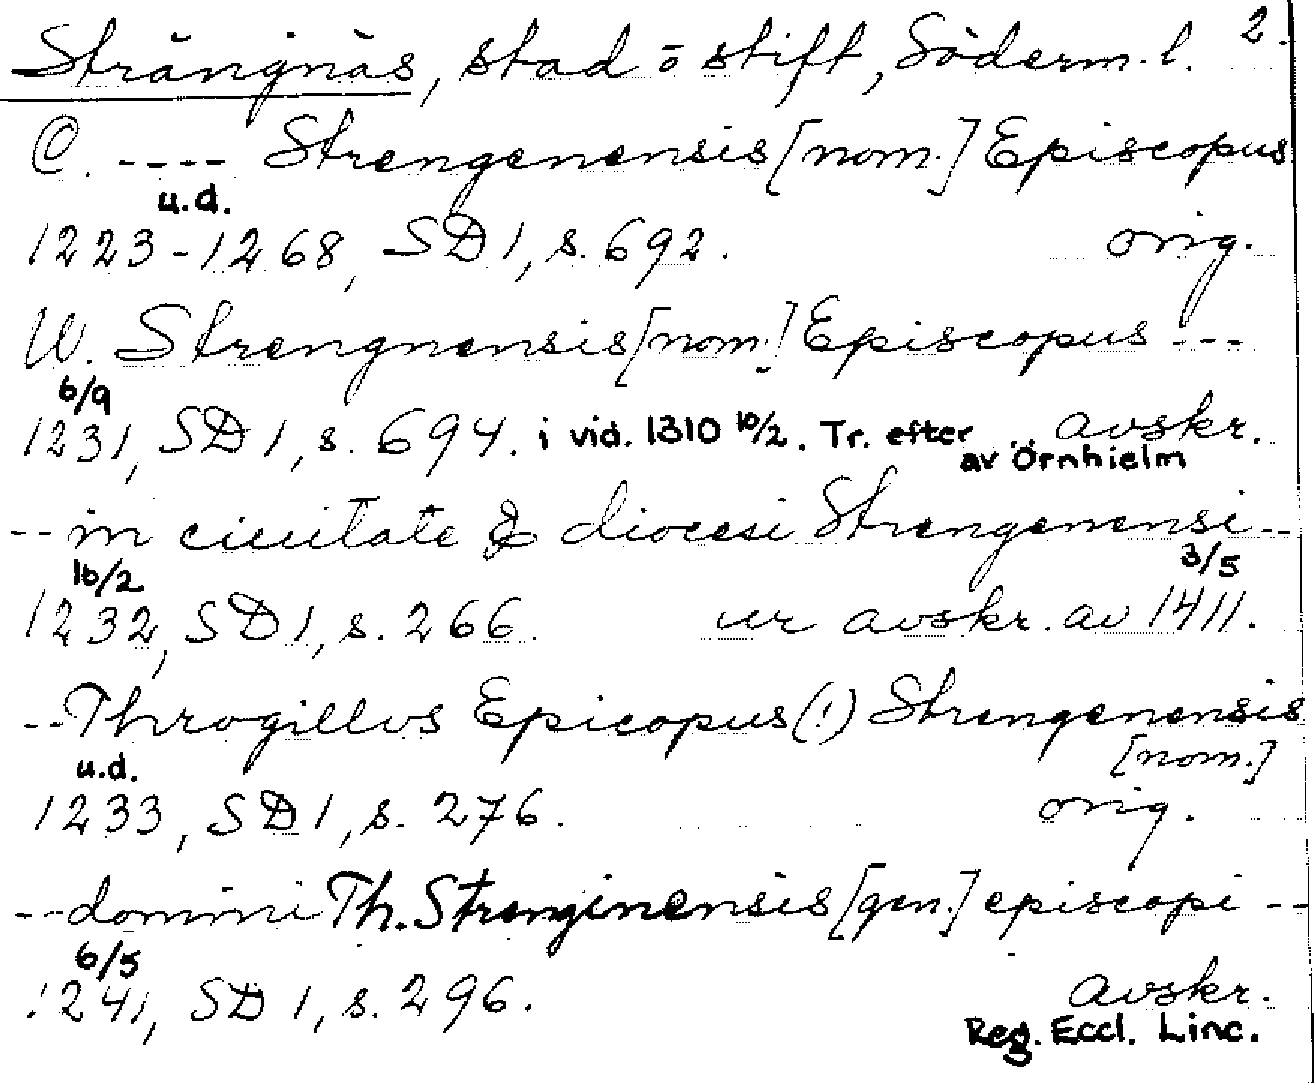 Strängnäs, stad o stift, Söderm. l. 2.
C. ---- Strengenensis [nom.] Episcopus
u.d.
1223-1268, SD 1, s. 692. orig.
W. Strengnensis [nom.] Episcopus ---
6/9
1231, SD 1, s. 694. i vid. 1310 10/2. Tr. efter avskr.
av Örnhielm
-- in ciuitate & diocesi Strengenensi --
16/2 3/5
1232, SD 1, s. 266. ur avskr. av 1411.
-- Throgillvs Epicopus (!) Strengenensis
[nom.]
u.d.
1233, SD 1, s. 276. orig.
-- domini Th. Strenginensis [gen.] episcopi --
6/5
1241, SD 1, s. 296. avskr.
Reg. Eccl. Linc.